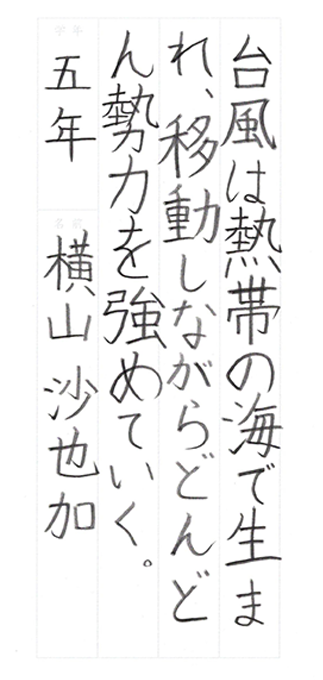 台風は熱帯の海で生ま
れ、移動しながらどんど
ん勢力を強めていく。
学年
五年
名前
横山 沙也加